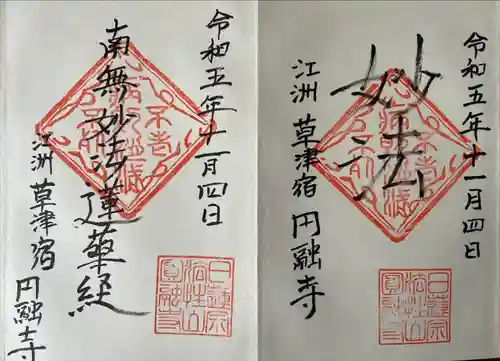 令和五年十一月四日
南無妙法蓮華経
江洲 草津宿 円融寺
日蓮宗
法性山
圓融寺
令和五年十一月四日
妙法
江洲 草津宿 円融寺
日蓮宗
法性山
圓融寺